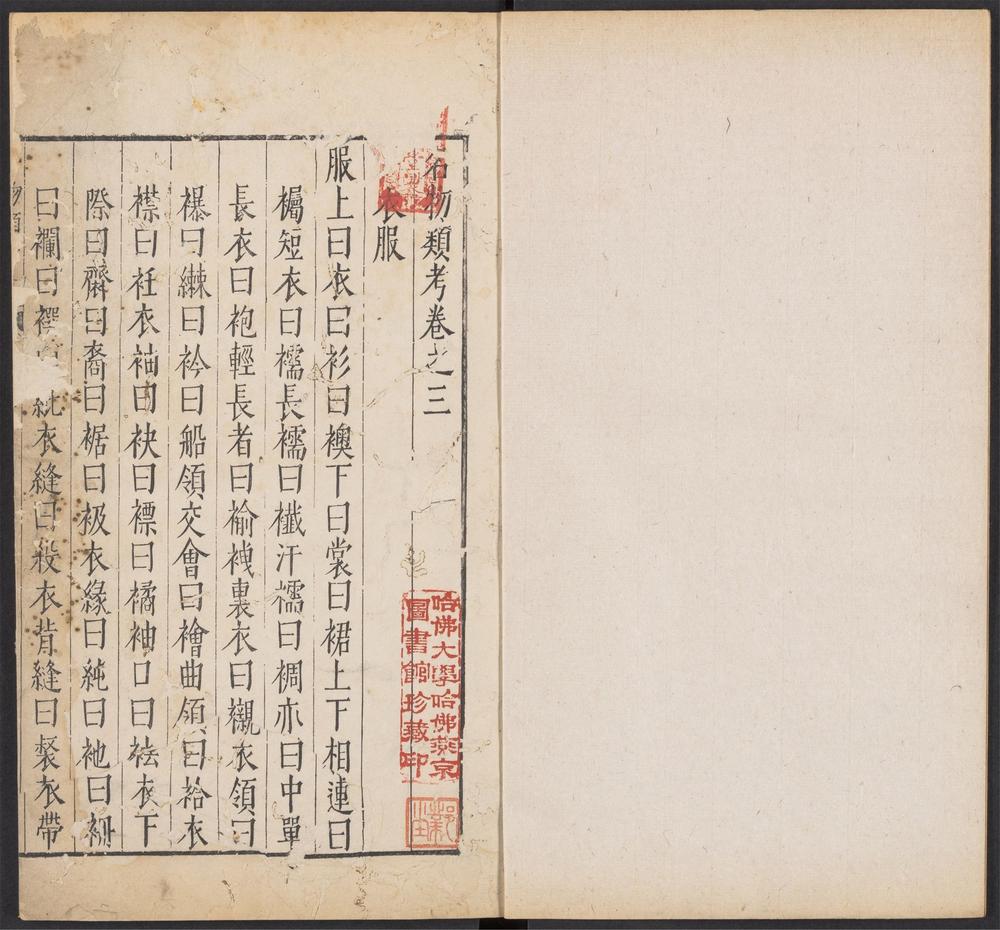 名物類考卷之三
衣服
服上曰衣曰衫曰襖下曰裳曰裙上下相連曰
襡短衣曰襦長襦曰襳汗襦曰裯亦曰中單
長衣曰袍輕長者曰褕袣裏衣曰襯衣領曰
襮曰綊曰衿曰船領交會曰襘曲領曰袷衣
襟曰衽衣袖曰袂曰褾曰襦袖口曰袪衣下
際曰齌曰裔曰裾曰衱衣緣曰純曰衪曰𧘽
曰襴曰襈 紞衣縫曰䘰衣背縫曰裻衣帶
哈佛大學哈佛燕京
圖書館珍藏印